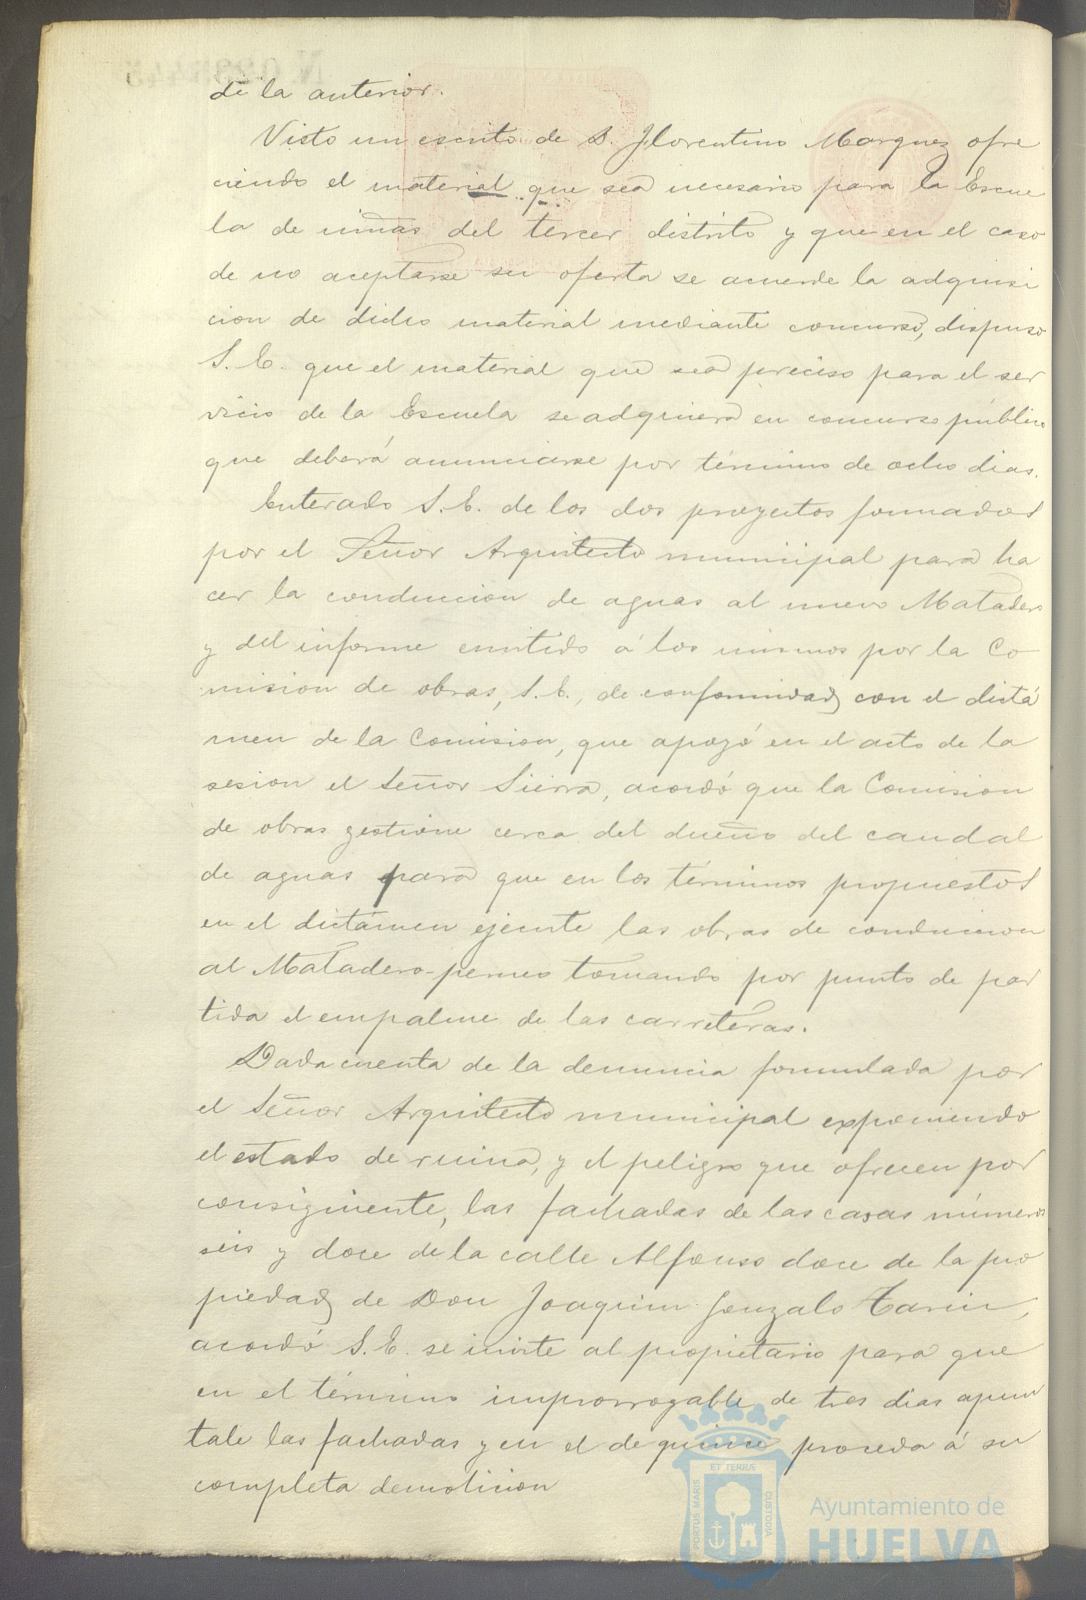 de la anterior.
Visto un escrito de D. Florentino Marquez ofre
ciendo el material que sea necesario para la Escue
la de niñas del tercer distrito y que en el caso
de no aceptarse su oferta se acuerde la adquisi
cion de dicho material mediante concurso, dispuso
S. E. que el material que sea preciso para el ser
vicio de la Escuela se adquiera en concurso público
que deberá anunciarse por término de ocho dias.
Enterado S. E. de los dos proyectos formados
por el Señor Arquitecto municipal para ha
cer la conduccion de aguas al nuevo Matadero
y del informe emitido á los mismos por la Co
mision de obras, S. E., de conformidad con el dictá
men de la Comision, que apoyó en el acto de la
sesion el Señor Sierra, acordó que la Comision
de obras gestione cerca del dueño del caudal
de aguas para que en los términos propuestos
en el dictámen ejecute las obras de conduccion
al Matadero-perneo tomando por punto de par
tida el empalme de las carreteras.
Dada cuenta de la denuncia formulada por
el Señor Arquitecto municipal exponiendo
el estado de ruina, y el peligro que ofrecen por
consiguiente, las fachadas de las casas números
seis y doce de la calle Alfonso doce de la pro
piedad de Don Joaquin Gonzalo Tarin,
acordó S. E. se invite al propietario para que
en el término improrrogable de tres dias apun
tale las fachadas y en el de quince proceda á su
completa demolicion
PORTUS MARIS
ET TERRÆ
CUSTODIA
Ayuntamiento de
HUELVA